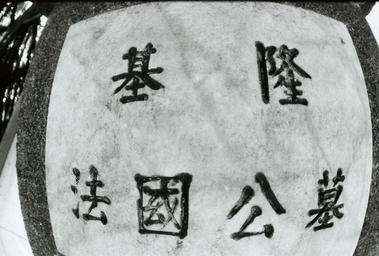 基隆
法國公墓